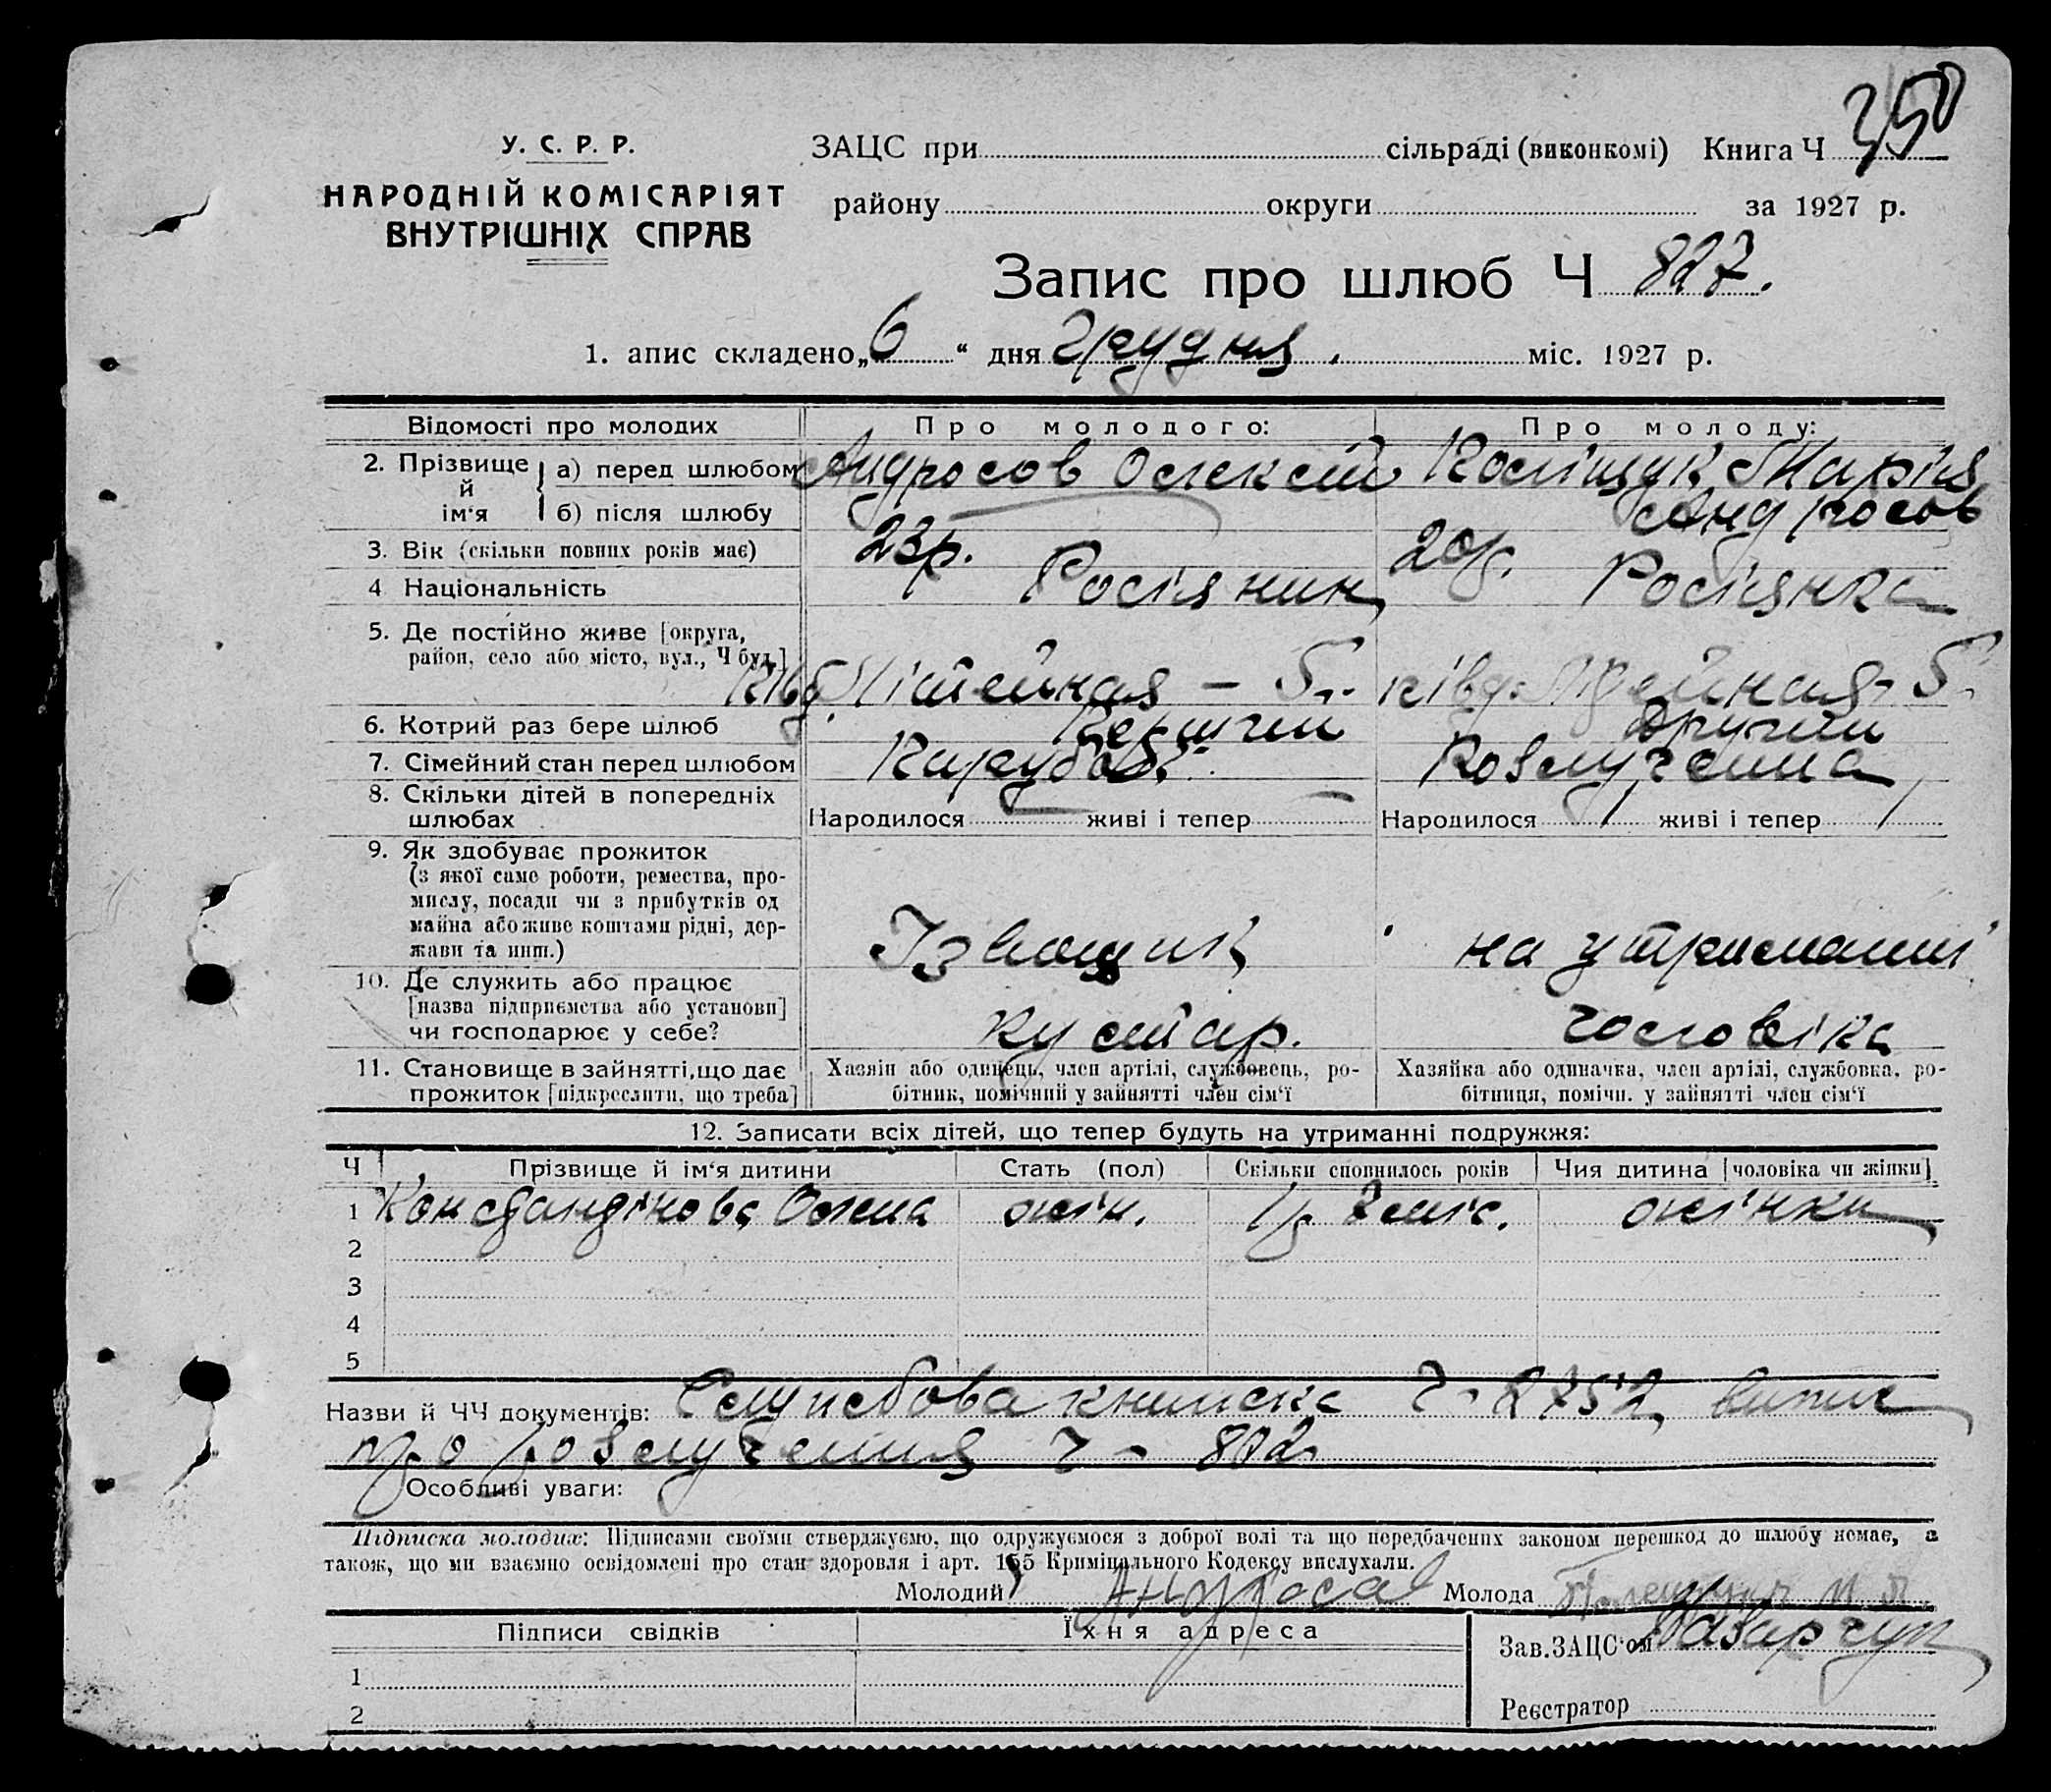 350
У. С. Р. Р.
НАРОДНІЙ КОМІСАРІЯТ
ВНУТРІШНІХ СПРАВ
ЗАЦС при сільраді (виконкомі) Книга Ч
району округи за 1927 р.
Запис про шлюб Ч 827.
1. апис складено „6“ дня Грудня міс. 1927 р.
Відомості про молодих Про молодого: Про молоду:
2. Прізвище й ім‘я
а) перед шлюбом Андросов Олексій Поліщук Марія
б) після шлюбу Андросов
3. Вік (скільки повних років має) 23р. 20р.
4 Національність Росіянин Росіянка
5. Де постійно живе [округа,
район, село або місто, вул., Ч буд.]
Літейная – 5. Літейная - 5.
6. Котрий раз бере шлюб Перший Другий
7. Сімейний стан перед шлюбом Парубок. Розлучена
8. Скільки дітей в попередніх
шлюбах
Народилося — живі і тепер — Народилося / живі і тепер /
9. Як здобуває прожиток
(з якої саме роботи, ремества, про-
мислу, посади чи з прибутків од
майна або живе коштами рідні, дер-
жави та инш.)
Ізвощик на утриманні
10. Де служить або працює
[назва підприємства або установи]
чи господарює у себе?
кустар. чоловіка
11. Становище в зайнятті, що дає
прожиток [підкреслити, що треба]
Хазяїн або одинець, член артілі, службовець, ро-
бітник, помічний у зайнятті член сім‘ї
Хазяйка або одиначка, член артілі, службовка, ро-
бітниця, помічн. у зайнятті член сім‘ї
12. Записати всіх дітей, що тепер будуть на утриманні подружжя:
Ч Прізвище й ім‘я дитини Стать (пол) Скільки сповнилось років Чия дитина [чоловіка чи жінки]
1 Константінова жін. міс. жінки
2
3
4
5
Назви й ЧЧ документів: Службова книжка ч- 2752, випис
про розлучення ч - 802
Особливі уваги:
Підписка молодих: Підписами своїми стверджуємо, що одружуємося з доброї волі та що передбачених законом перешкод до шлюбу немає, а
також, що ми взаємно освідомлені про стан здоровля і арт. 155 Кримінального Кодексу вислухали.
Молодий Андросов Молода
Підписи свідків Їхня адреса
Зав. ЗАЦС‘ом
1
2
Реєстратор